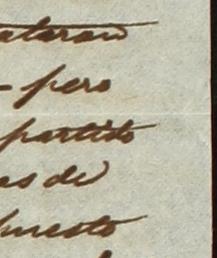 ataran
- pero
partido
as de
puesto